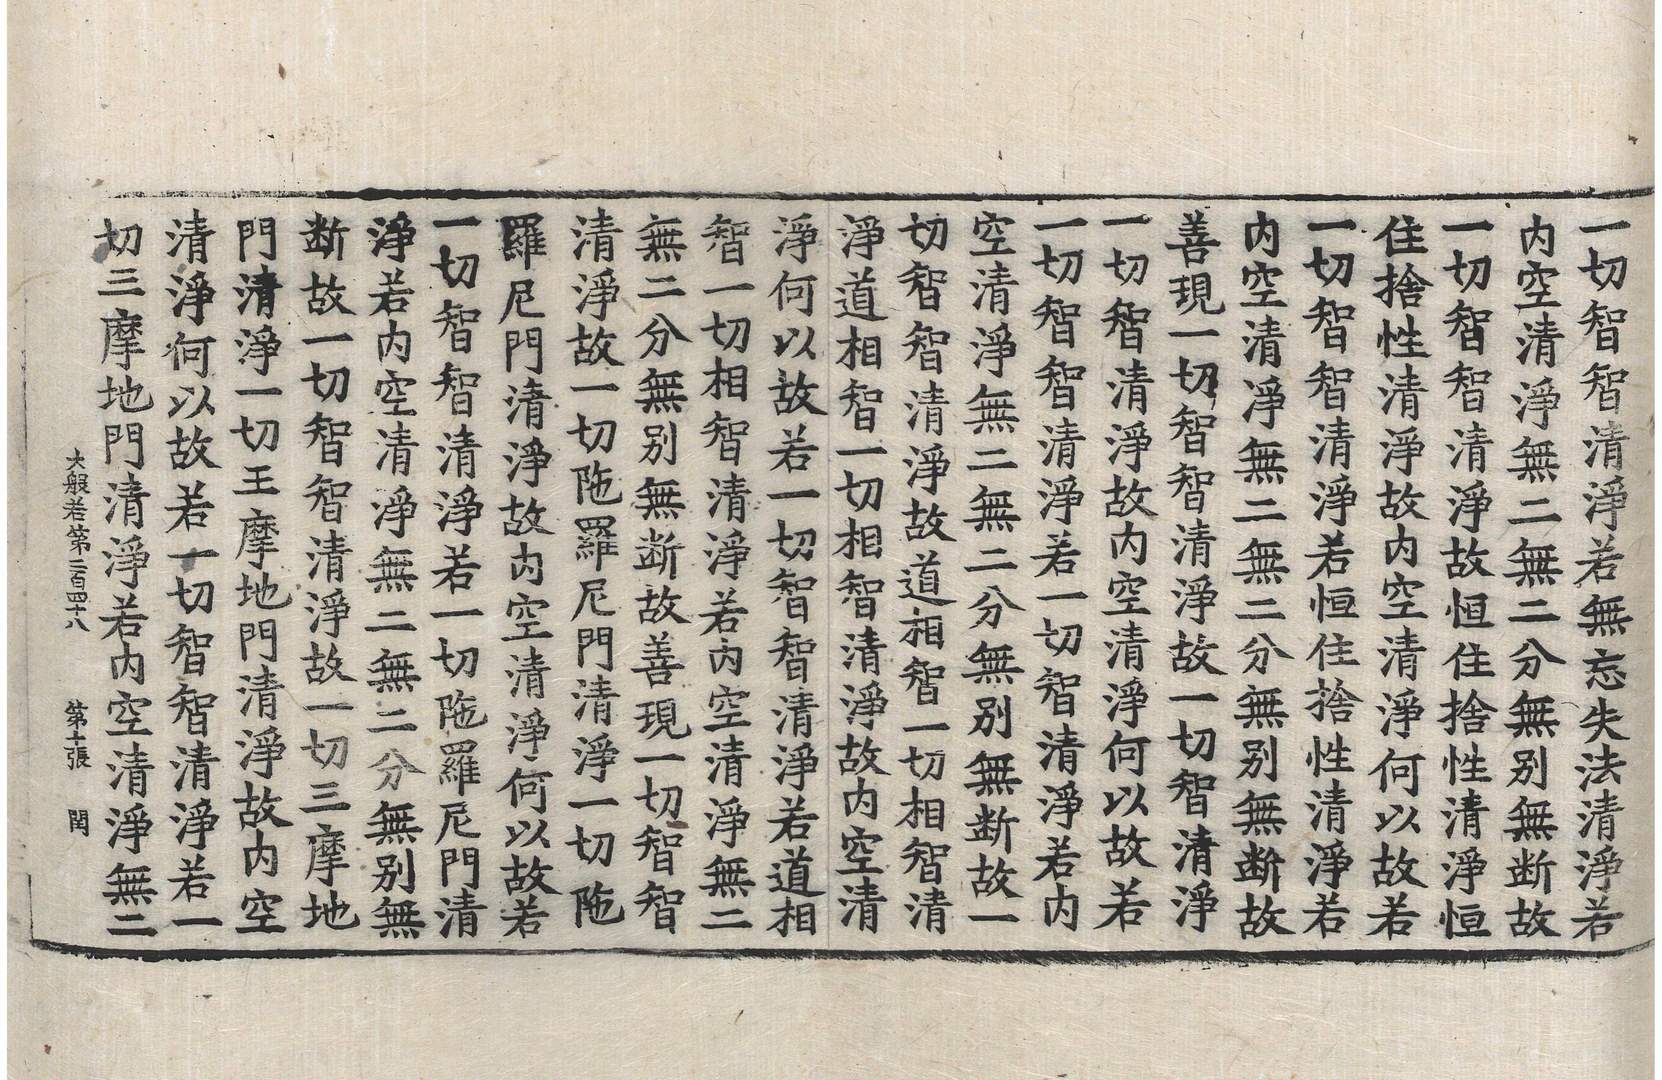 一切智智清淨若無忘失法清淨若
内空清淨無二無二分無别無断故
一切智智清淨故恒住捨性清淨恒
住捨性清淨故内空清淨何以故若
一切智智清淨若恒住捨性清淨若
内空清淨無二無二分無别無断故
善現一切智智清淨故一切智清淨
一切智清淨故内空清淨何以故若
一切智智清淨若一切智清淨若内
空清淨無二無二分無别無断故一
切智智清淨故道相智一切相智清
淨道相智一切相智清淨故内空清
淨何以故若一切智智清淨若道相
智一切相智清淨若内空清淨無二
無二分無别無断故善現一切智智
清淨故一切陁羅尼門清淨一切陁
羅尼門清淨故内空清淨何以故若
一切智智清淨若一切陁羅尼門清
淨若内空清淨無二無二分無别無
断故一切智智清淨故一切三摩地
門清淨一切王摩地門清淨故内空
清淨何以故若一切智智清淨若一
切三摩地門清淨若内空清淨無二
大般若第二百四十八 第十張 閏